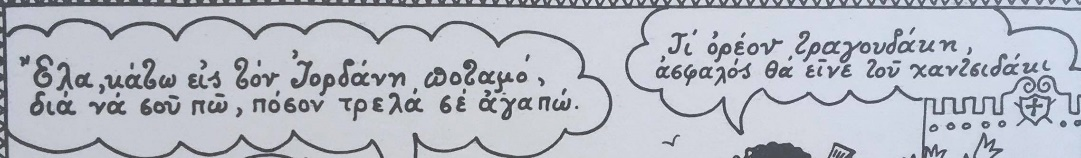 Ἔλα, κάτω εἰς τόν Ἰορδάνη ποταμό,
διά νά σοῦ πῶ, πόσον τρελά σέ ἀγαπώ.
Τί ὀρέον τραγουδάκη,
ἀσφαλός θά εἶνε τοῦ χαντσιδάκι